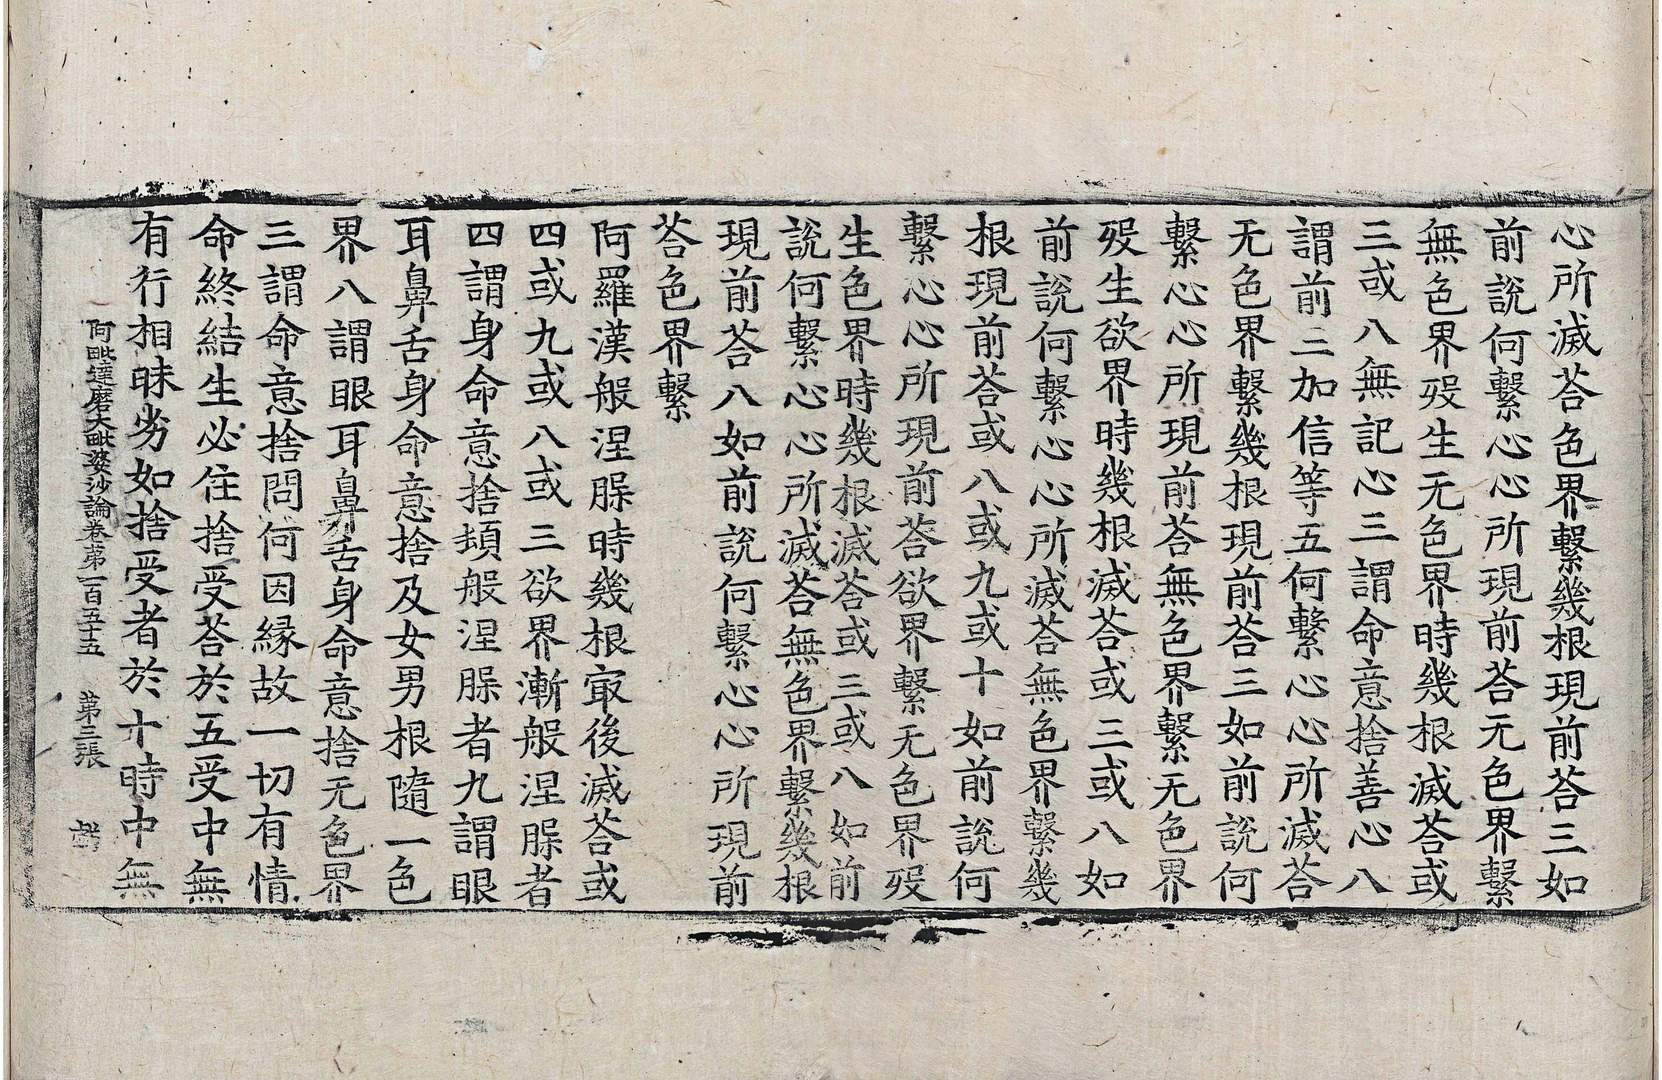 心所滅荅色界繫幾根現前荅三如
前說何繫心心所現前荅无色界繫
無色界歿生无色界時幾根滅荅或
三或八無記心三謂命意捨善心八
謂前三加信等五何繫心心所滅荅
无色界繫幾根現前荅三如前說何
繫心心所現前荅無色界繫无色界
歿生欲界時幾根滅荅或三或八如
前說何繫心心所滅荅無色界繫幾
根現前荅或八或九或十如前說何
繫心心所現前荅欲界繫无色界歿
生色界時幾根滅荅或三或八如前
說何繫心心所滅荅無色界繫幾根
現前荅八如前說何繫心心所現前
荅色界繫
阿羅漢般涅槃時幾根冣後滅荅或
四或九或八或三欲界漸般涅槃者
四謂身命意捨頓般涅槃者九謂眼
耳鼻舌身命意捨及女男根隨一色
界八謂眼耳鼻舌身命意捨无色界
三謂命意捨問何因緣故一切有情
命終結生必住捨受荅於五受中無
有行相昧劣如捨受者於十時中無
阿毗達磨大毗婆沙論卷第一百五十五 第三張